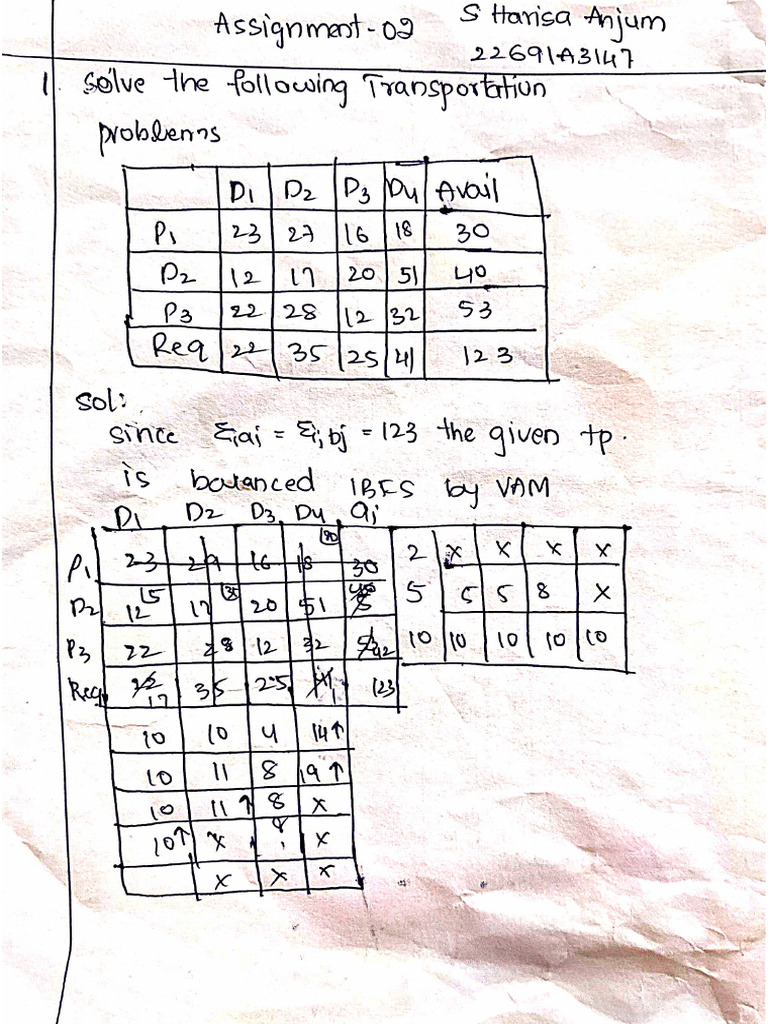 Assignment-02 S Harisa Anjum
22691A3147
1. solve the following Transportation
problems
D1 D2 D3 D4 Avail
P1 23 27 16 18 30
D2 12 17 20 51 40
P3 22 28 12 32 53
Req 22 35 25 41 123
sol:
since Σiai = Σi,bj = 123 the given tp.
is balanced IBFS by VAM
D1 D2 D3 D4 ai
P1 23 29 16 18 30 2 x x x x
D2 12 15 17 35 20 51 5 5 5 8 x
P3 22 28 12 32 53 42 10 10 10 10 10
Req 22 17 35 25 41 1 123
10 10 4 14↑
10 11 8 19↑
10 11↑ 8 x
10↑ x x
x x x